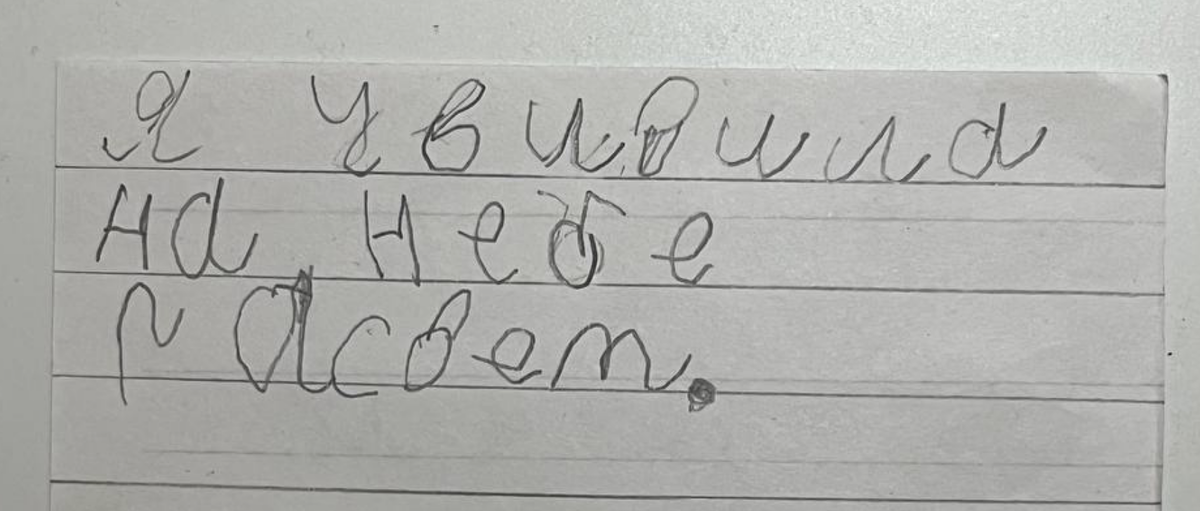 Я увидила
на небе
расвет.